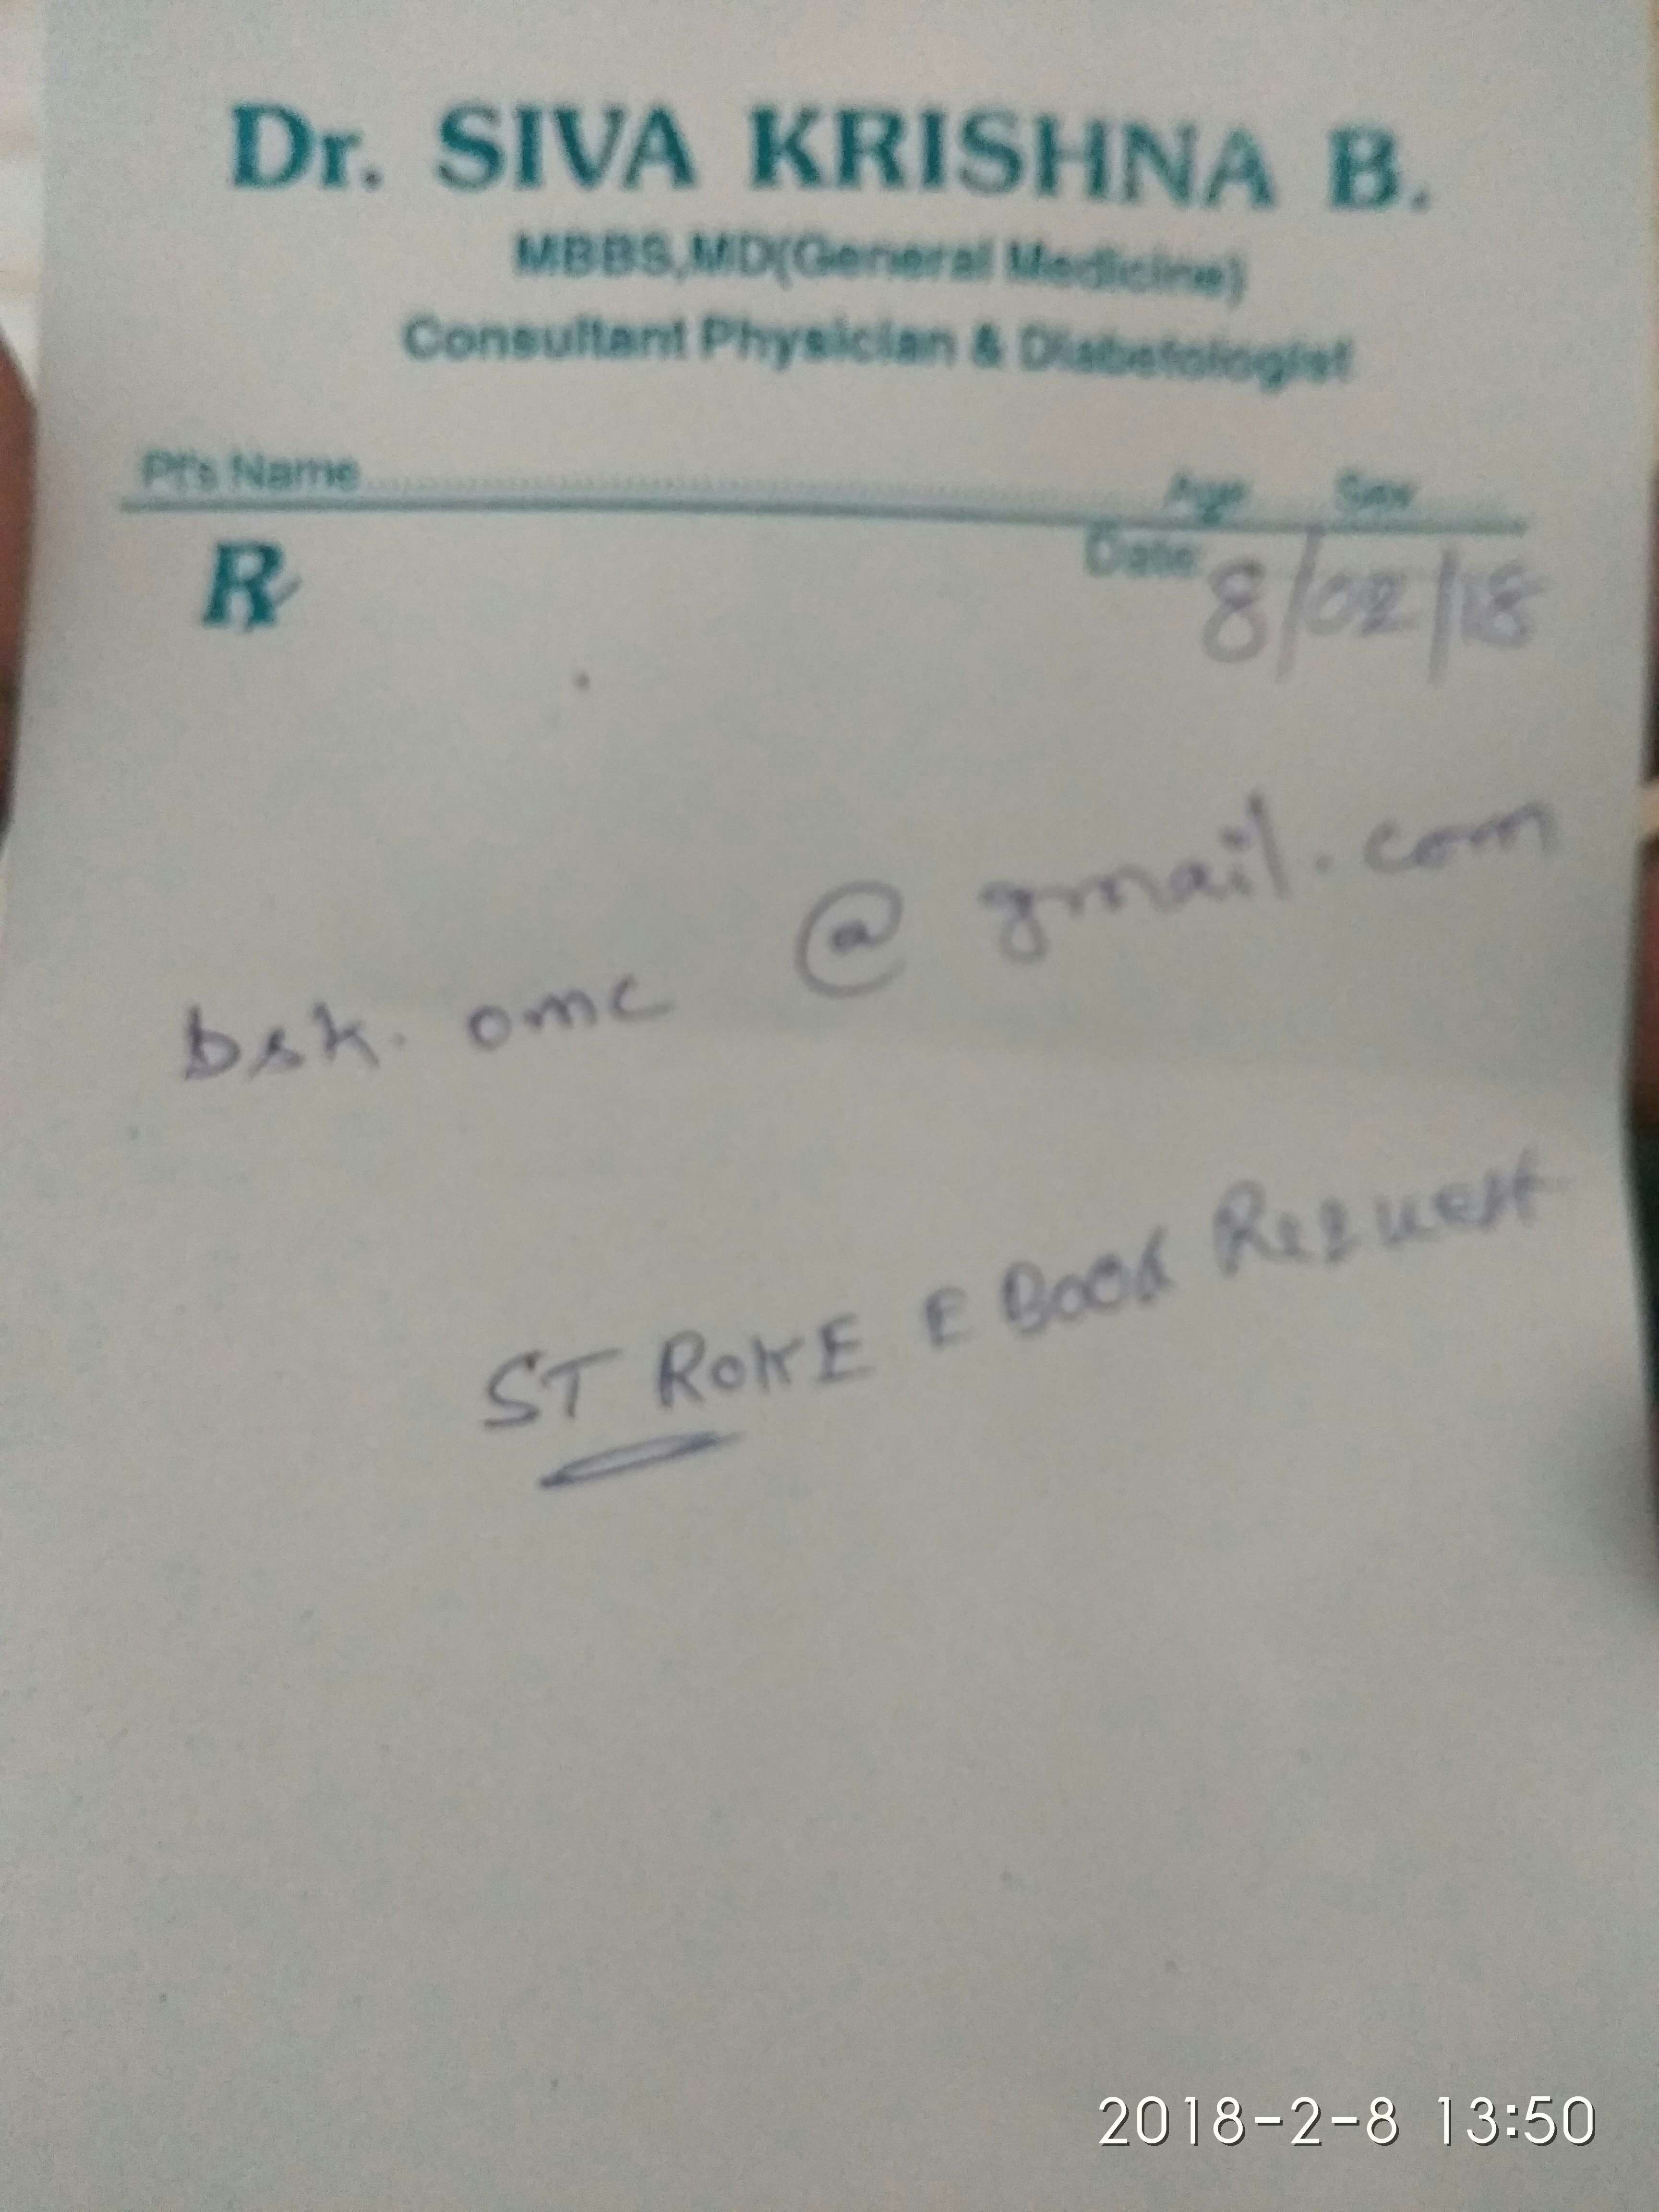 Dr. SIVA KRISHNA B.
MBBS,MD(General Medicine)
Consultant Physician & Diabetologist
Pt's Name Age Sex
Date: 8/02/18
Rx
bsk.omc@gmail.com
STROKE E Book Request
2018-2-8 13:50